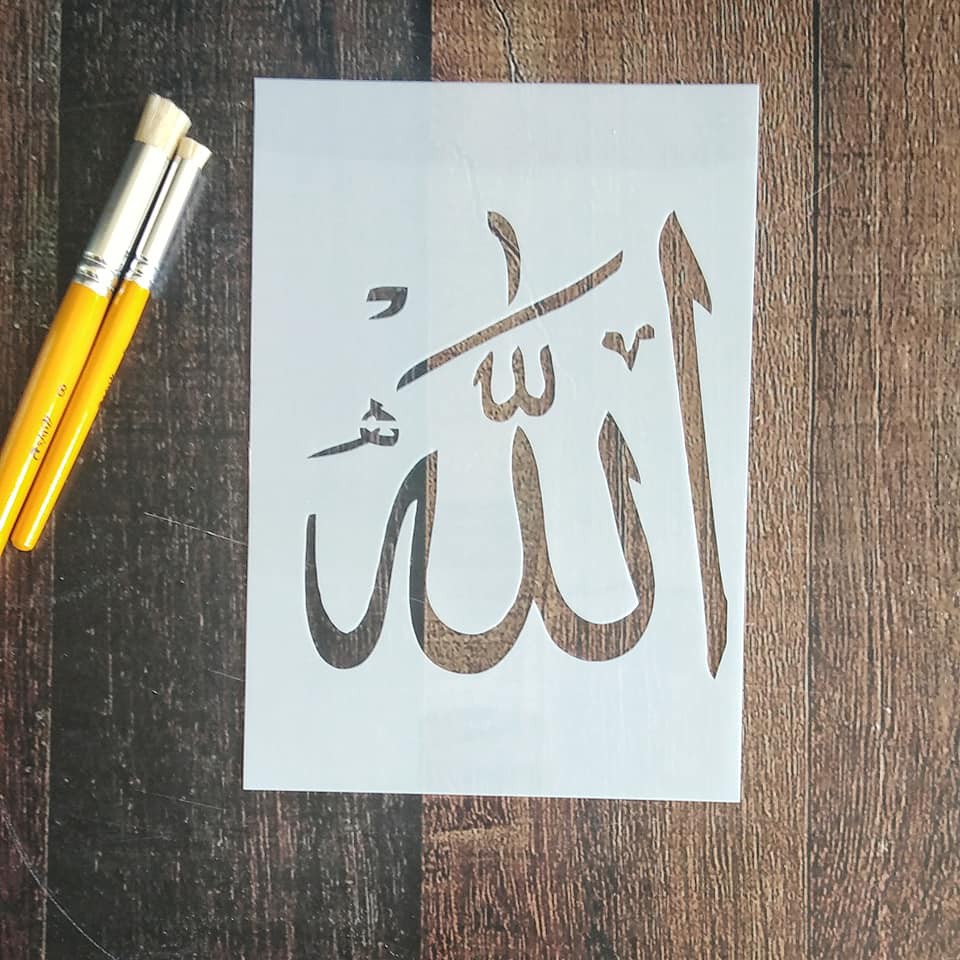 الله
8